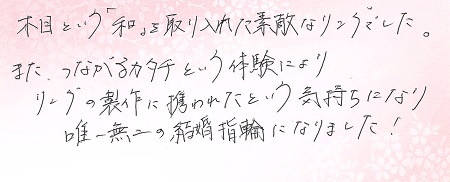 木目という「和」を取り入れた素敵なリングでした。
また、つながるカタチという体験により
リングの製作に携われたという気持ちになり
唯一無二の結婚指輪になりました！